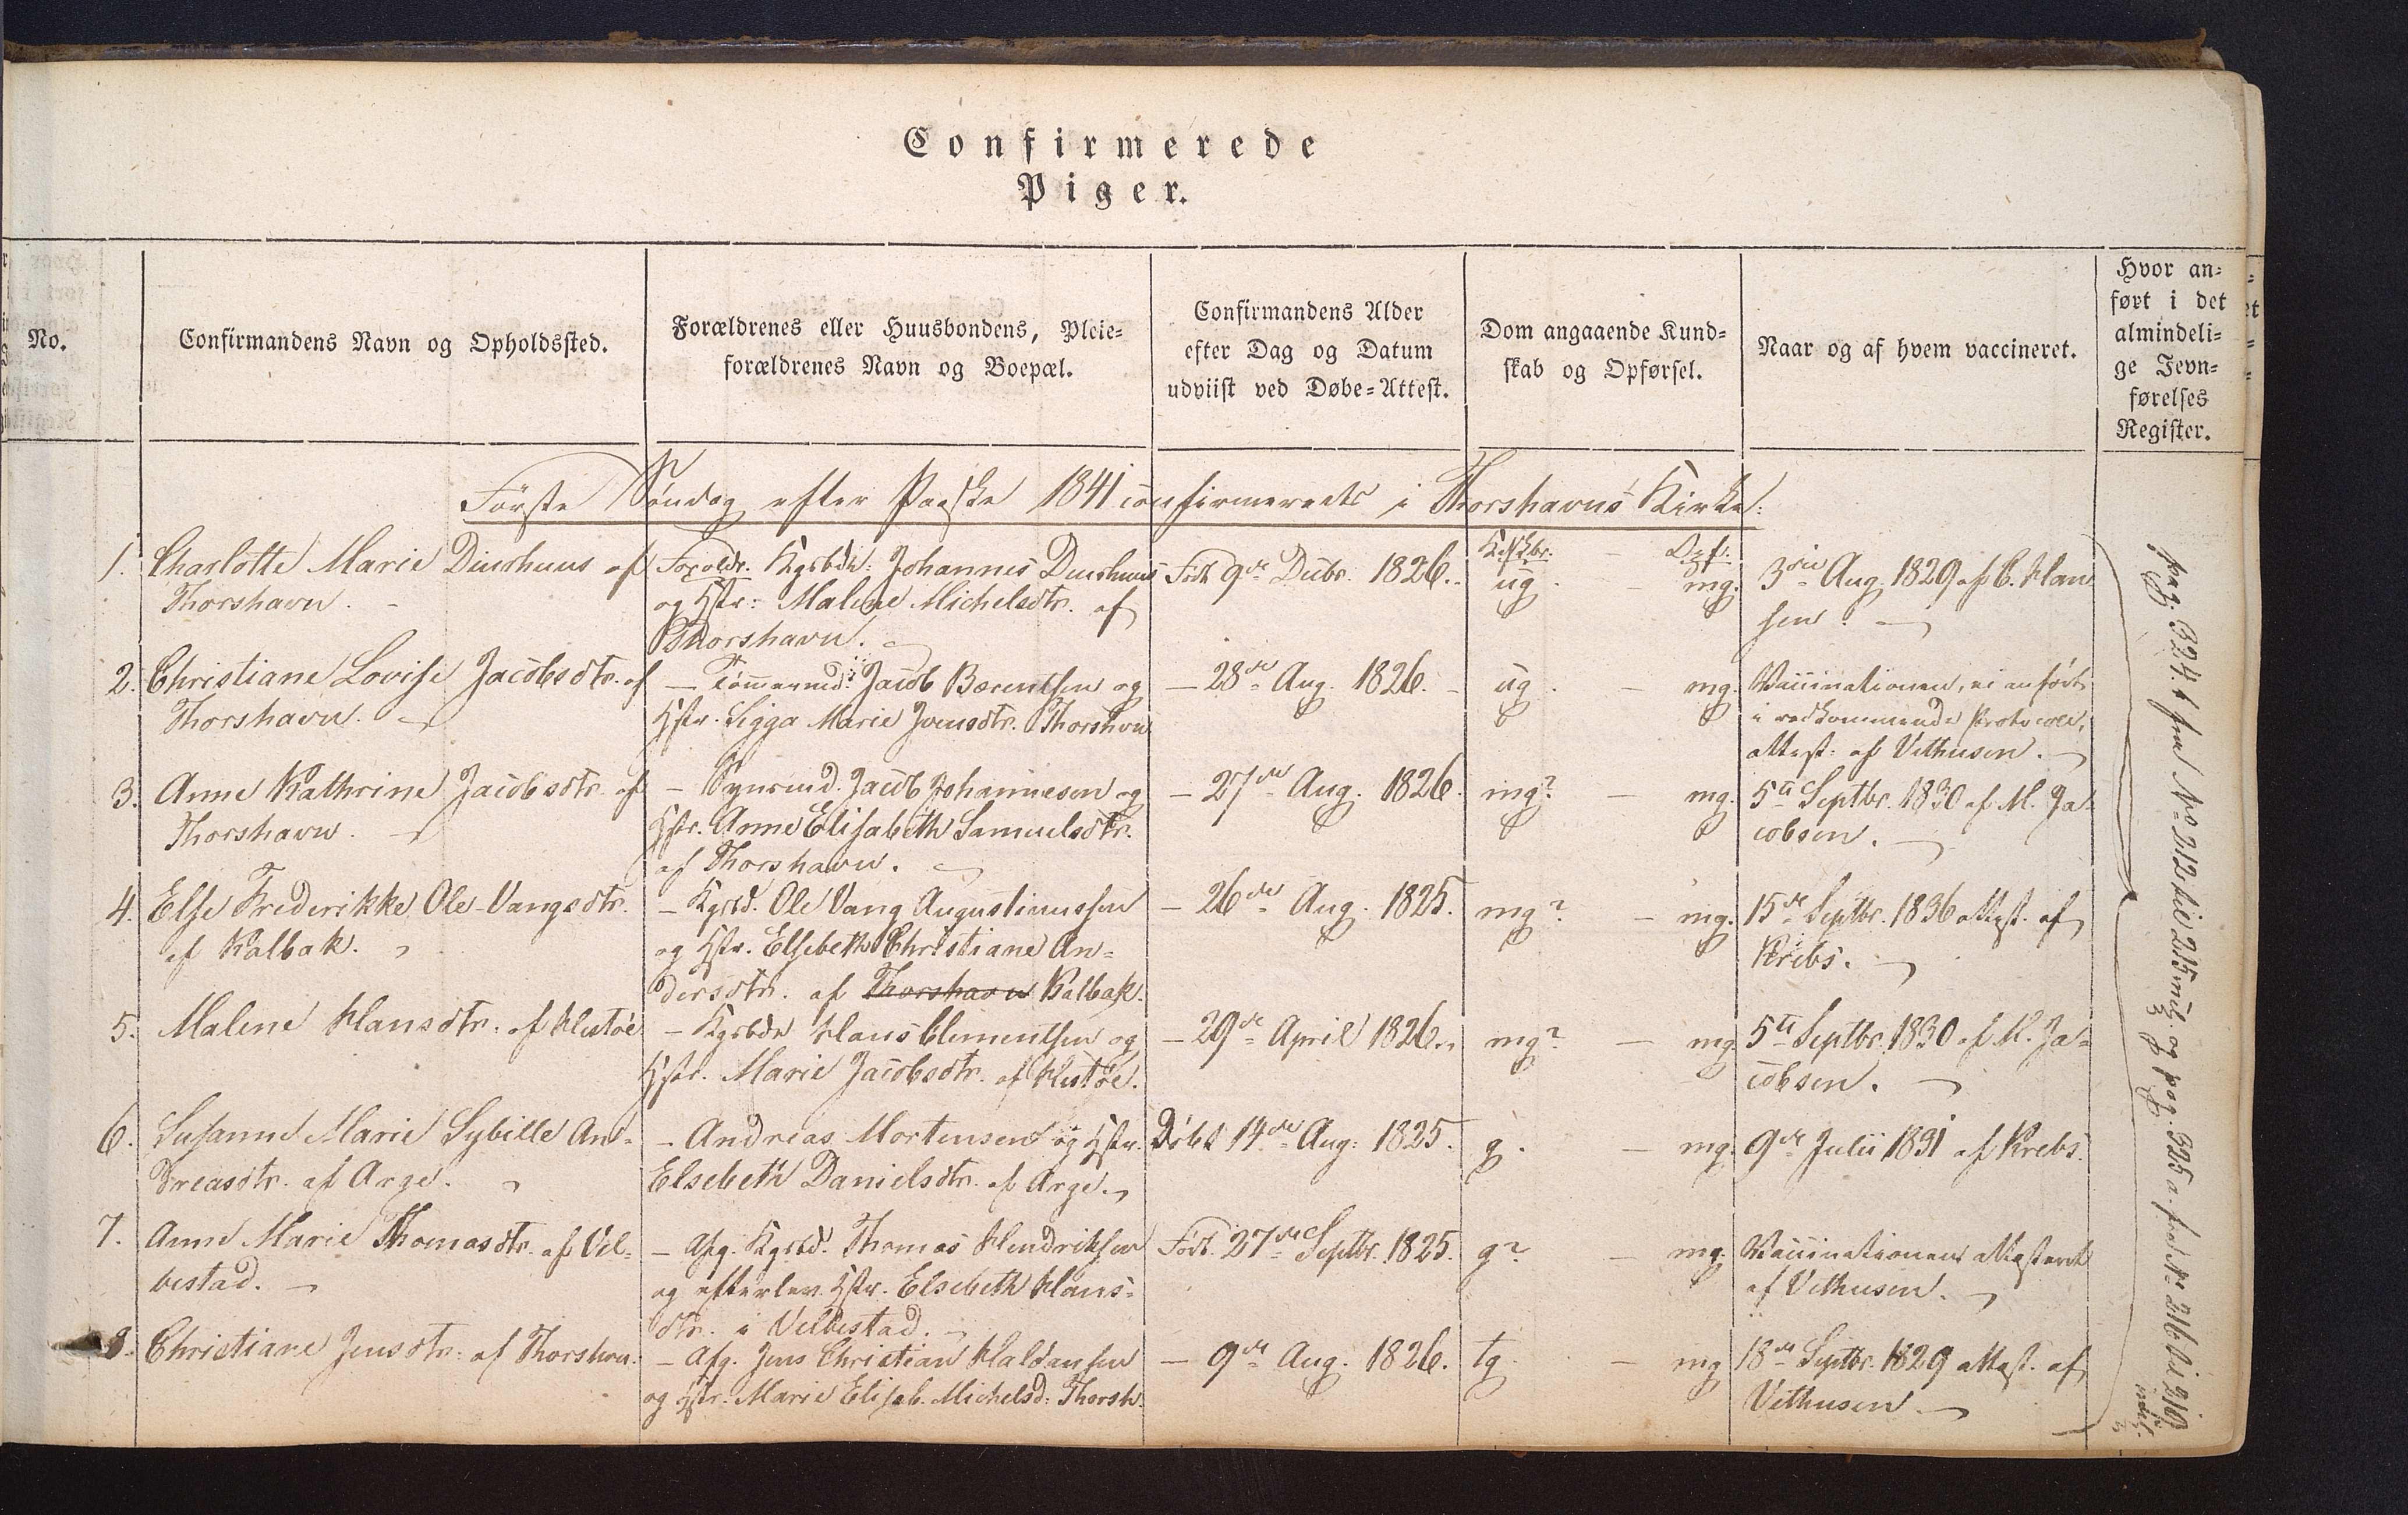 Confirmerede
Piger.
No.
Confirmandens Navn og Opholdssted.
Forældrenes eller Huusbondens, Pleie-
forældrenes Navn og Boepæl.
Confirmandens Alder
efter Dag og Datum
udviist ved Døbe-Attest.
Dom angaaende Kund-
skab og Opførsel.
Naar og af hvem vaccineret.
Hvor an-
ført i det
almindeli-
ge Jevn-
førelses
Register.
Første Søndag efter Paaske 1841 confirmerede i Thorshavns Kirke:
1. Charlotte Marie Diurhuus af
Thorshavn.
Foræld. Kgsbd: Johannes Diurhuus
og Hstr: Malene Michelsdtr. af
Thorshavn.
Født 9de Decbr. 1826.
Kdskbr. – Opf.
ug. – mg.
3die Aug. 1829 af C. Han
sen.
2. Christiane Lovise Jacobsdtr. af
Thorshavn.
– Tømmermd: Jacob Bærentsen og
Hstr. Sigga Marie Joensdtr. Thorshvn
– 28de Aug. 1826.
ug. – mg.
Vaccinationen, ei anført
i vedkommende Protocol,
attest: af Vithusen.
3. Anne Kathrine Jacobsdtr. af
Thorshavn.
– Jacob Johannesen og
Hstr. Anne Elisabeth Samuelsdtr.
af Thorshavn.
– 27de Aug. 1826.
mg? – mg.
5te Septbr. 1830 af M. Ja-
cobsen.
4. Else Frederikke Ole-Vangsdtr.
af Kalbak.
– Kgsbd. Ole Vang Augustinussen
og Hstr. Elsebeth Christiane An-
dersdtr. af Thorshavn Kalbak.
– 26de Aug. 1825.
mg? – mg.
15de Septbr. 1836 attest. af
Krebs.
5. Malene Hansdtr. af Hestøe
– Kgsbd Hans Clementsen og
Hstr. Marie Jacobsdtr. af Hestøe.
– 29de April 1826.
mg? – mg
5te Septbr. 1830 af M. Ja-
cobsen.
6. Susanne Marie Sybille An-
dreasdtr. af Arge.
– Andreas Mortensen og Hstr.
Elsebeth Danielsdtr. af Arge.
Døbt 14de Aug: 1825.
g. – mg.
9de Julii 1831 af Krebs.
7. Anne Marie Thomasdtr. af Vel-
bestad.
– Afg. Kgsbd. Thomas Hendriksen
og efterlev. Hstr. Elsebeth Hans-
dtr. i Velbestad.
Født. 27de Septbr. 1825.
g? – mg.
Vaccinationen attesteret
af Vithusen.
8. Christiane Jensdtr: af Thorshvn.
– Afg. Jens Christian Haldansen
og Hstr. Marie Elisab. Michelsd: Thorsh.
– 9de Aug. 1826.
tg. – mg
18de Septbr. 1829 attest. af
Vithusen
pag. 324. t fra No 212 til 215 incl. og pag. 325 a. fra No 216 til 219
incl.